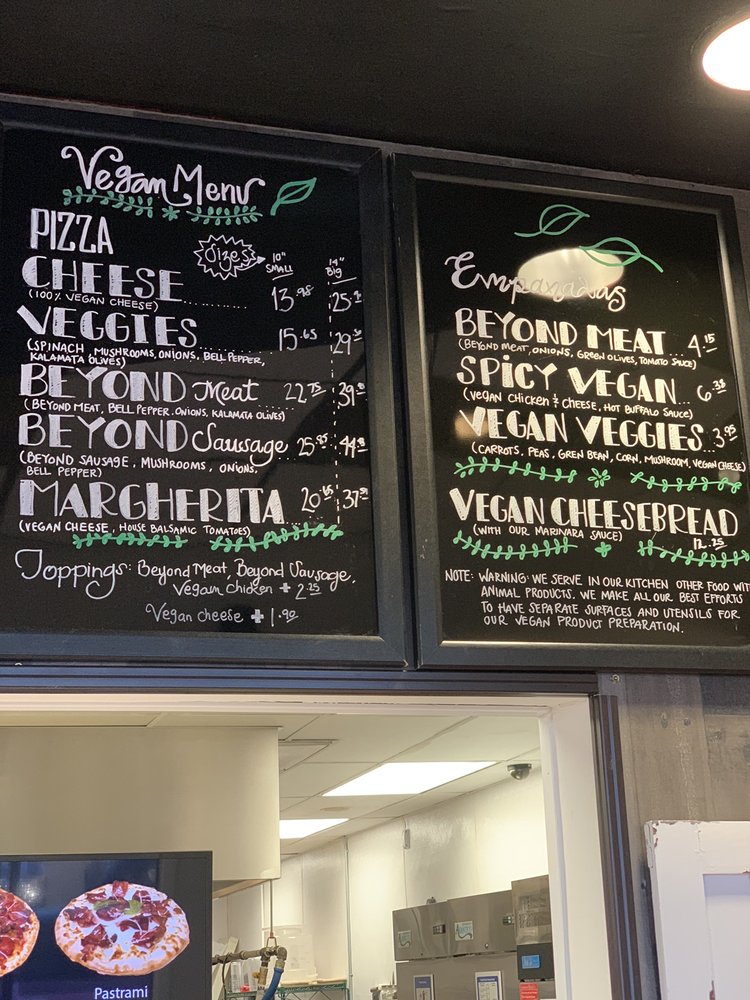 Vegan Menu
PIZZA
Sizes
10"
SMALL
14"
BIG
CHEESE
(100% VEGAN CHEESE)
13.95
VEGGIES
15.65
(SPINACH, MUSHROOMS, ONIONS, BELL PEPPER,
KALAMATA OLIVES)
BEYOND Meat 22.75
(BEYOND MEAT, BELL PEPPER, ONIONS, KALAMATA OLIVES)
BEYOND Sausage
(BEYOND SAUSAGE, MUSHROOMS, ONIONS,
BELL PEPPER)
MARGHERITA
(VEGAN CHEESE, HOUSE BALSAMIC TOMATOES)
Toppings: Beyond Meat, Beyond Sausage,
Vegan chicken + 2.25
Vegan cheese + 1.90
Empanadas
BEYOND MEAT... 4.15
(BEYOND MEAT, ONIONS, GREEN OLIVES, TOMATO SAUCE)
SPICY VEGAN...
(VEGAN CHICKEN & CHEESE, HOT BUFFALO SAUCE)
VEGAN VEGGIES... 3.95
(CARROTS, PEAS, GREN BEAN, CORN, MUSHROOM, VEGAN CHEESE)
VEGAN CHEESEBREAD
(WITH OUR MARINARA SAUCE) 12.25
NOTE: WARNING: WE SERVE IN OUR KITCHEN OTHER FOOD WITH
ANIMAL PRODUCTS. WE MAKE ALL OUR BEST EFFORTS
TO HAVE SEPARATE SURFACES AND UTENSILS FOR
OUR VEGAN PRODUCT PREPARATION.
Pastrami